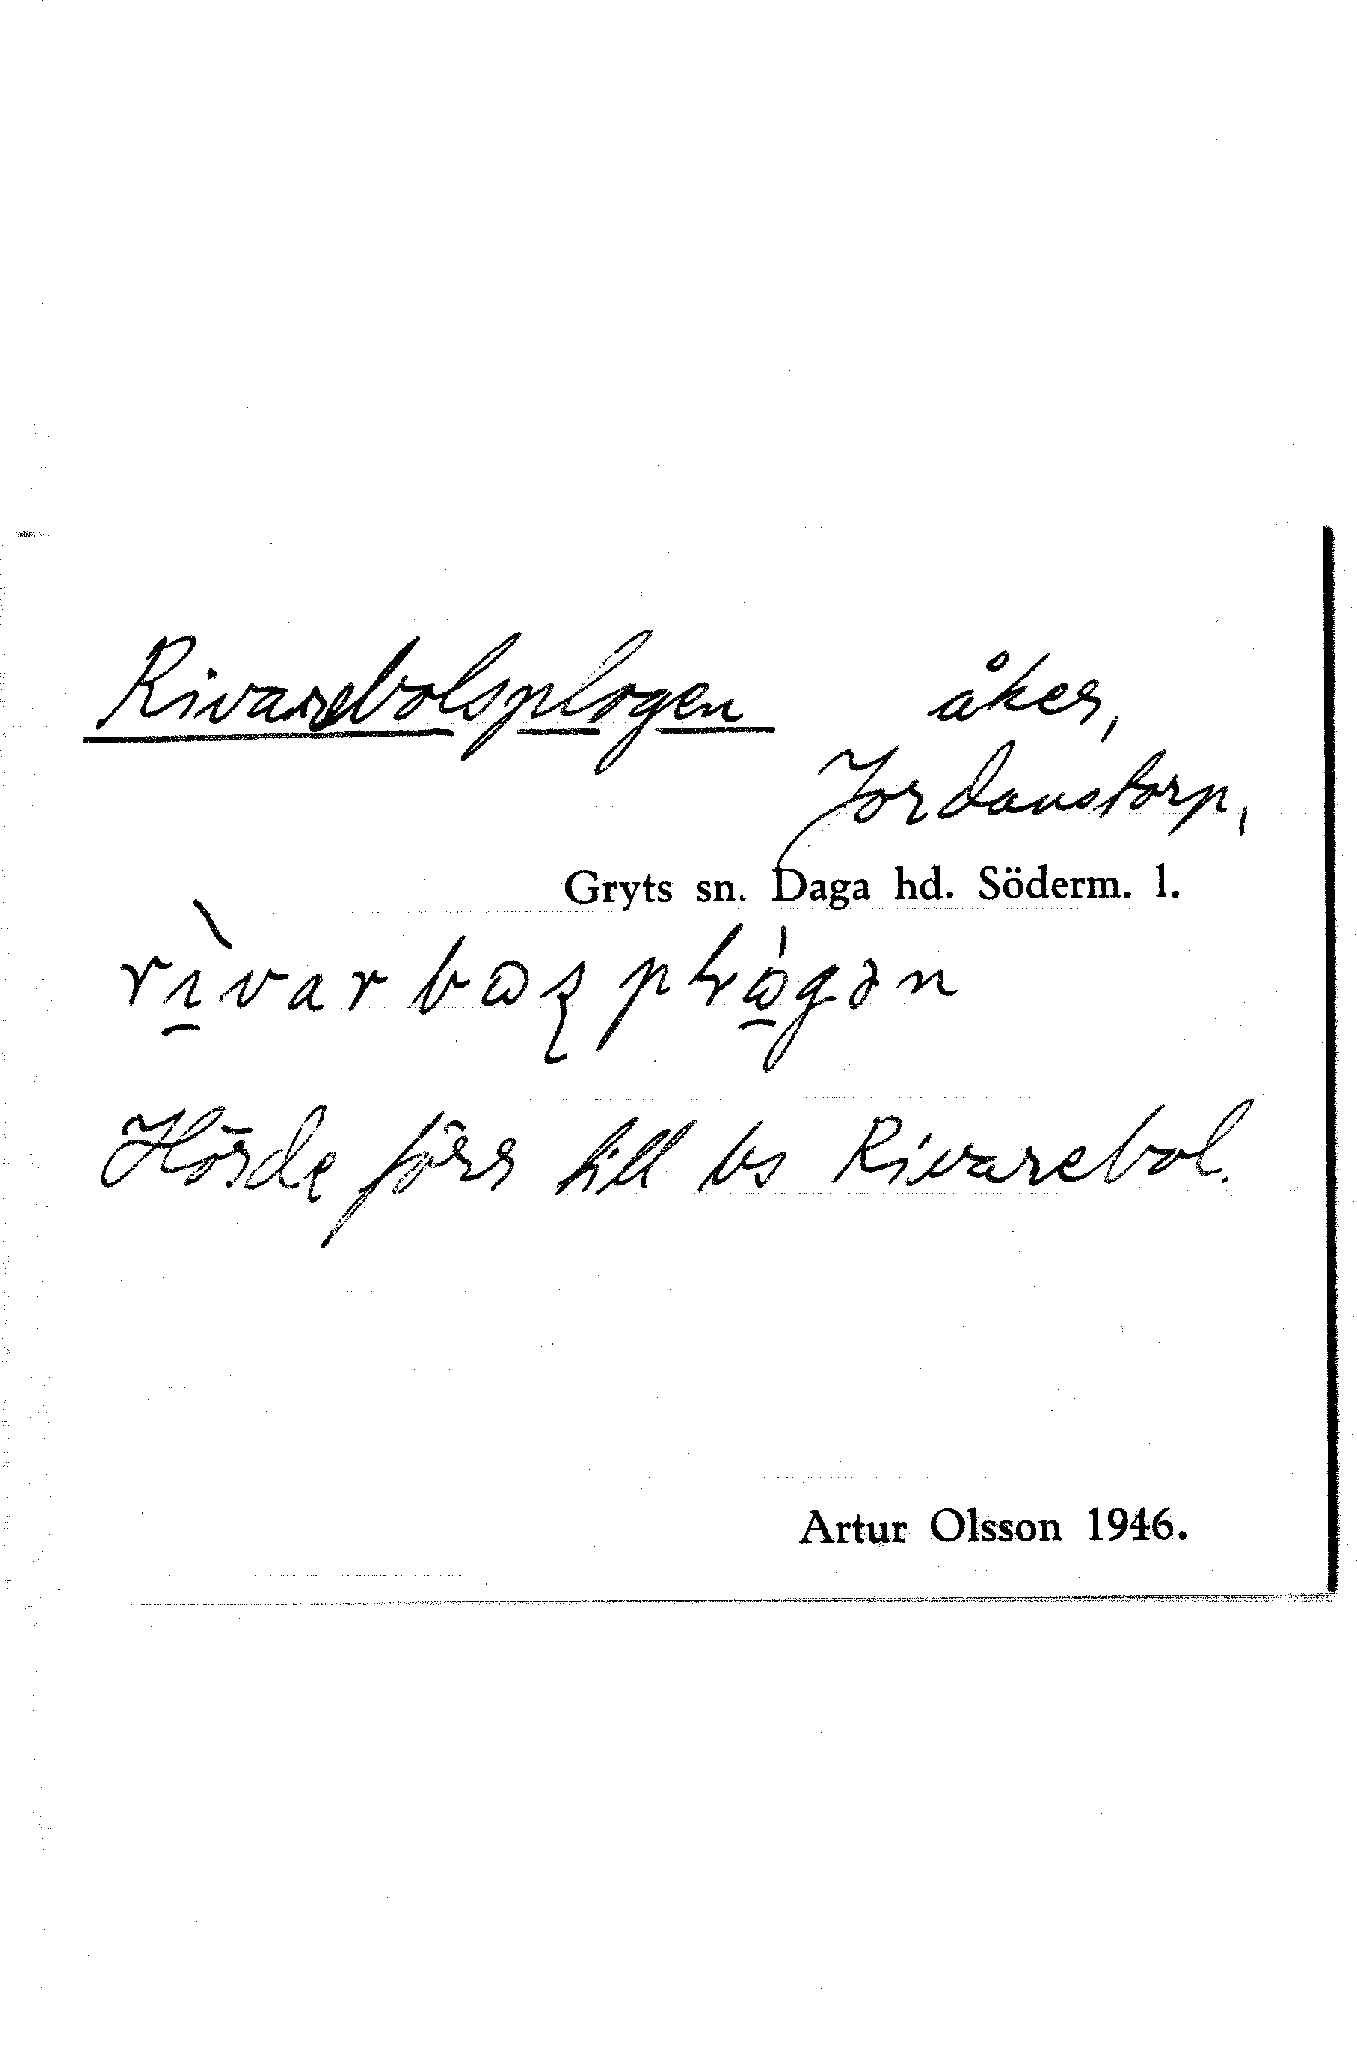 Rivarebolsplogen åker,
Jordanstorp,
Gryts sn. Daga hd. Söderm. l.
Hörde förr till bs Rivarebol.
Artur Olsson 1946.